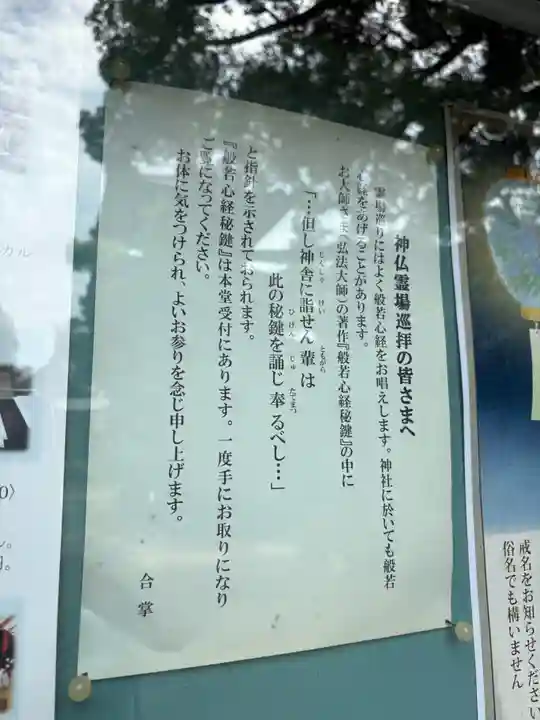 神仏霊場巡拝の皆さまへ
霊場巡りにはよく般若心経をお唱えします。神社に於いても般若
心経をあげることがあります。
お大師さま(弘法大師)の著作『般若心経秘鍵』の中に
「…但し神舎に詣せん輩は
じんしゃ
けい
ともがら
此の秘鍵を誦じ奉るべし…」
ひけん
じゅ
たてまつ
と指針を示されておられます。
『般若心経秘鍵』は本堂受付にあります。一度手にお取りになり
ご覧になってください。
お体に気をつけられ、よいお参りを念じ申し上げます。
合掌
戒名をお知らせください
俗名でも構いません
カル
0〉